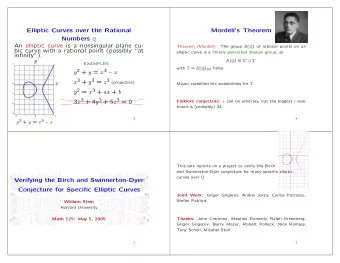 Elliptic Curves over the Rational
Numbers Q
An elliptic curve is a nonsingular plane cu-
bic curve with a rational point (possibly "at
infinity").
EXAMPLES
y² + y = x³ − x
x³ + y³ = z³ (projective)
y² = x³ + ax + b
3x³ + 4y³ + 5z³ = 0
y
x
y² + y = x³ − x
Mordell's Theorem
Theorem (Mordell). The group E(Q) of rational points on an
elliptic curve is a finitely generated abelian group, so
E(Q) ≅ Zʳ ⊕ T,
with T = E(Q)tor finite.
Mazur classified the possibilities for T.
Folklore conjecture: r can be arbitrary, but the biggest r ever
found is (probably) 24.
Verifying the Birch and Swinnerton-Dyer
Conjecture for Specific Elliptic Curves
William Stein
Harvard University
Math 129: May 5, 2005
This talk reports on a project to verify the Birch
and Swinnerton-Dyer conjecture for many specific elliptic
curves over Q.
Joint Work: Grigor Grigorov, Andrei Jorza, Corina Patrascu,
Stefan Patrikis
Thanks: John Cremona, Stephen Donnelly, Ralph Greenberg,
Grigor Grigorov, Barry Mazur, Robert Pollack, Nick Ramsey,
Tony Scholl, Micahel Stoll.